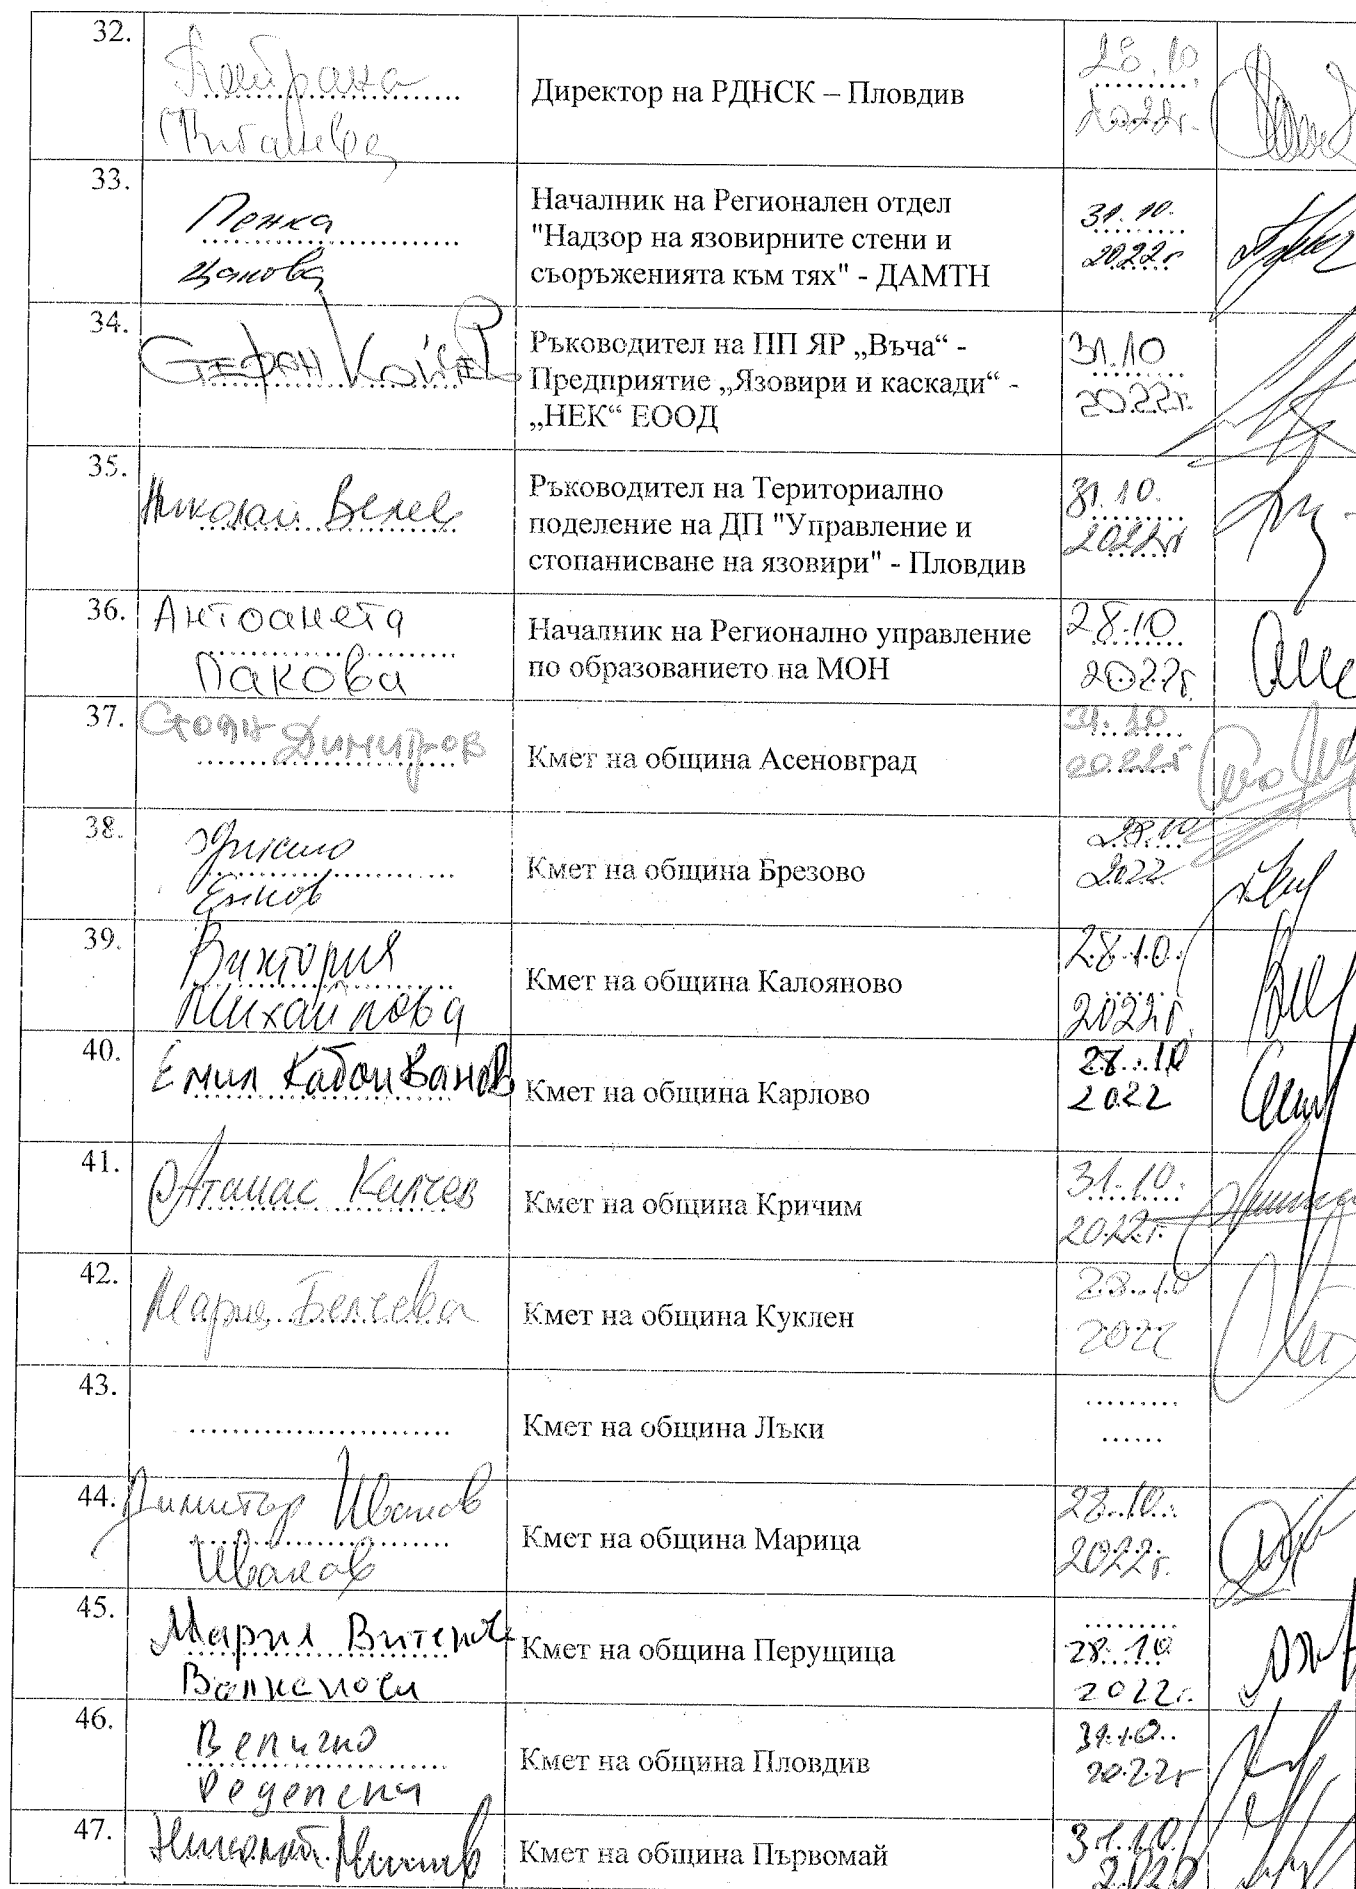 32.
Директор на РДНСК – Пловдив
28.10
2022г.
33.
Пенка
Цанова
Началник на Регионален отдел
"Надзор на язовирните стени и
съоръженията към тях" - ДАМТН
31.10.
2022г
34.
Стефан
Ръководител на ПП ЯР „Въча“ -
Предприятие „Язовири и каскади“ -
„НЕК“ ЕООД
31.10
2022г.
35.
Николай Велев
Ръководител на Териториално
поделение на ДП "Управление и
стопанисване на язовири" - Пловдив
31.10.
2022г
36.
Антоанета
Пакова
Началник на Регионално управление
по образованието на МОН
28.10
2022г.
37.
Стоян Димитров
Кмет на община Асеновград
31.10
2022г
38.
Кмет на община Брезово
28.10
2022
39.
Виктория
Михайлова
Кмет на община Калояново
28.10.
2022г.
40.
Емил Кабаиванов
Кмет на община Карлово
28.10
2022
41.
Атанас Калчев
Кмет на община Кричим
31.10.
2022г.
42.
Мария Белчева
Кмет на община Куклен
28.10
2022
43.
Кмет на община Лъки
44.
Димитър Иванов
Иванов
Кмет на община Марица
28.10.
2022г.
45.
Мария
Кмет на община Перущица
28.10
2022г.
46.
Величко
Кмет на община Пловдив
31.10.
2022г
47.
Николай Митков
Кмет на община Първомай
31.10.